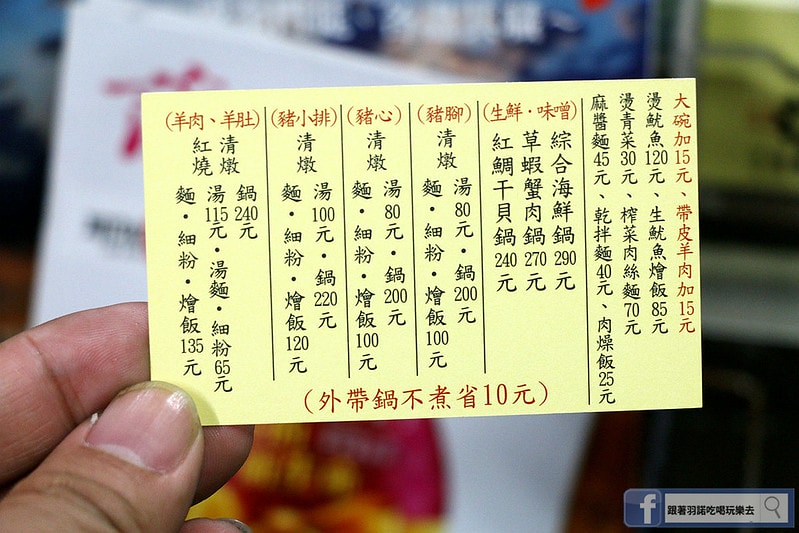 大碗加15元、帶皮羊肉加15元
燙魷魚120元、生魷魚燴飯85元
燙青菜30元、榨菜肉絲麵70元
麻醬麵45元、乾拌麵40元、肉燥飯25元
(生鮮·味噌)
綜合海鮮鍋290元
草蝦蟹肉鍋270元
紅鯛干貝鍋240元
(豬腳)
清燉
湯80元·鍋200元
麵·細粉·燴飯100元
(豬心)
清燉
湯80元·鍋200元
麵·細粉·燴飯100元
(豬小排)
清燉
湯100元·鍋220元
麵·細粉·燴飯120元
(羊肉、羊肚)
清燉
紅燒
鍋240元
湯115元·湯麵·細粉65元
麵·細粉·燴飯135元
(外帶鍋不煮省10元)
f 跟著羽諾吃喝玩樂去